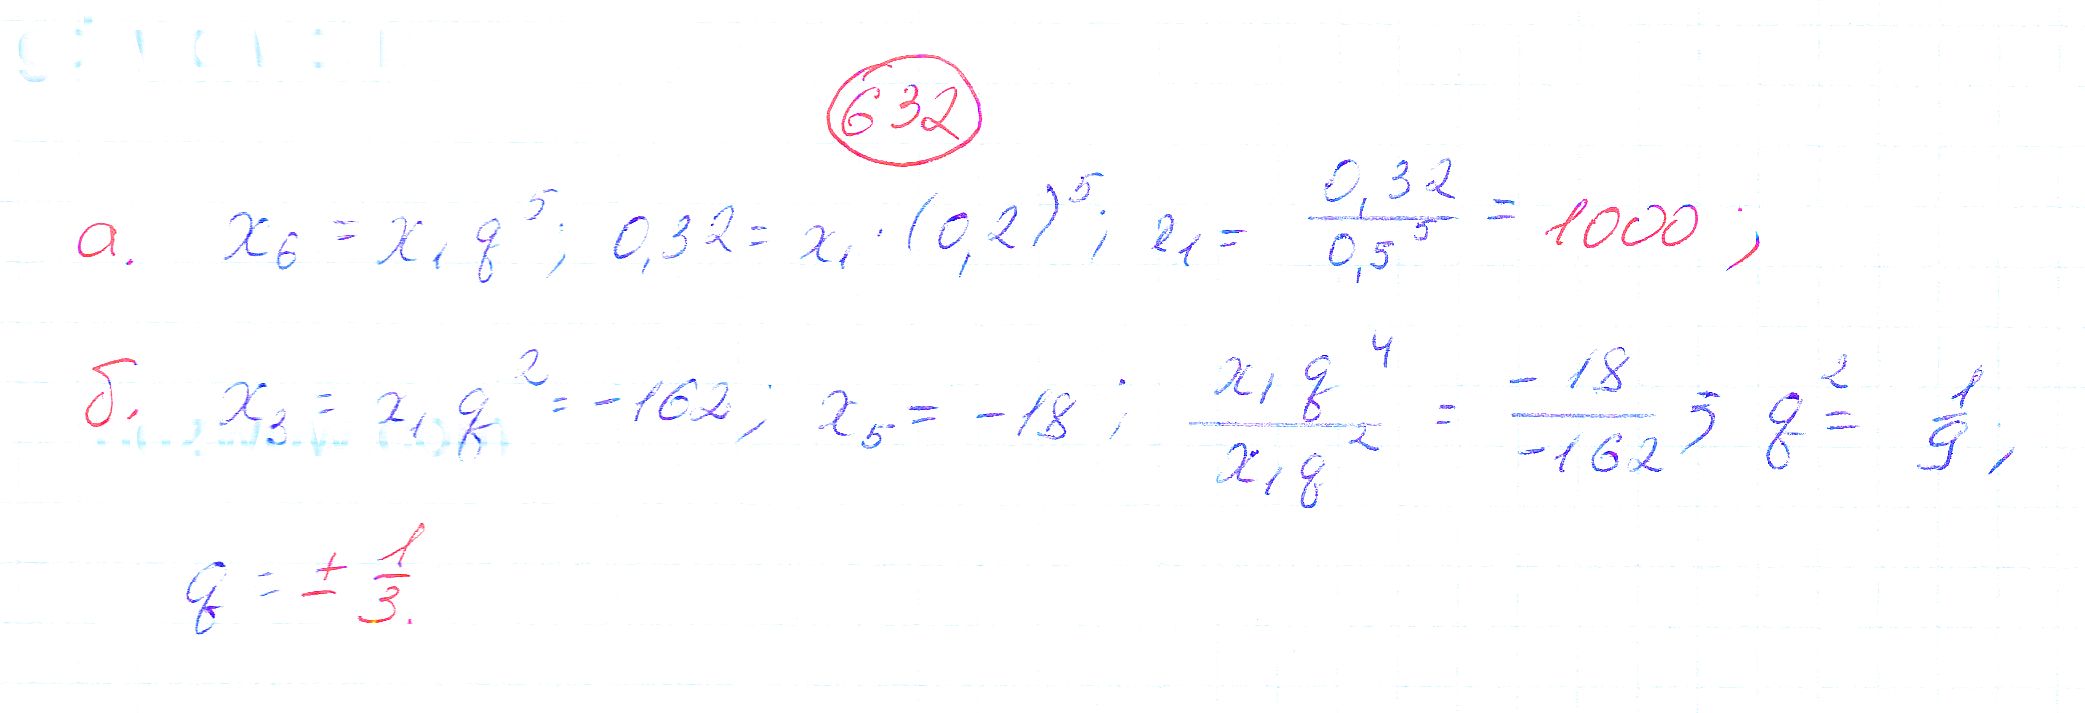 632
а. x₆ = x₁q⁵; 0,32 = x₁·(0,2)⁵; x₁ = 0,32/0,5⁵ = 1000;
б. x₃ = x₁q² = -162; x₅ = -18; x₁q⁴/x₁q² = -18/-162; q² = 1/9,
q = ± 1/3.